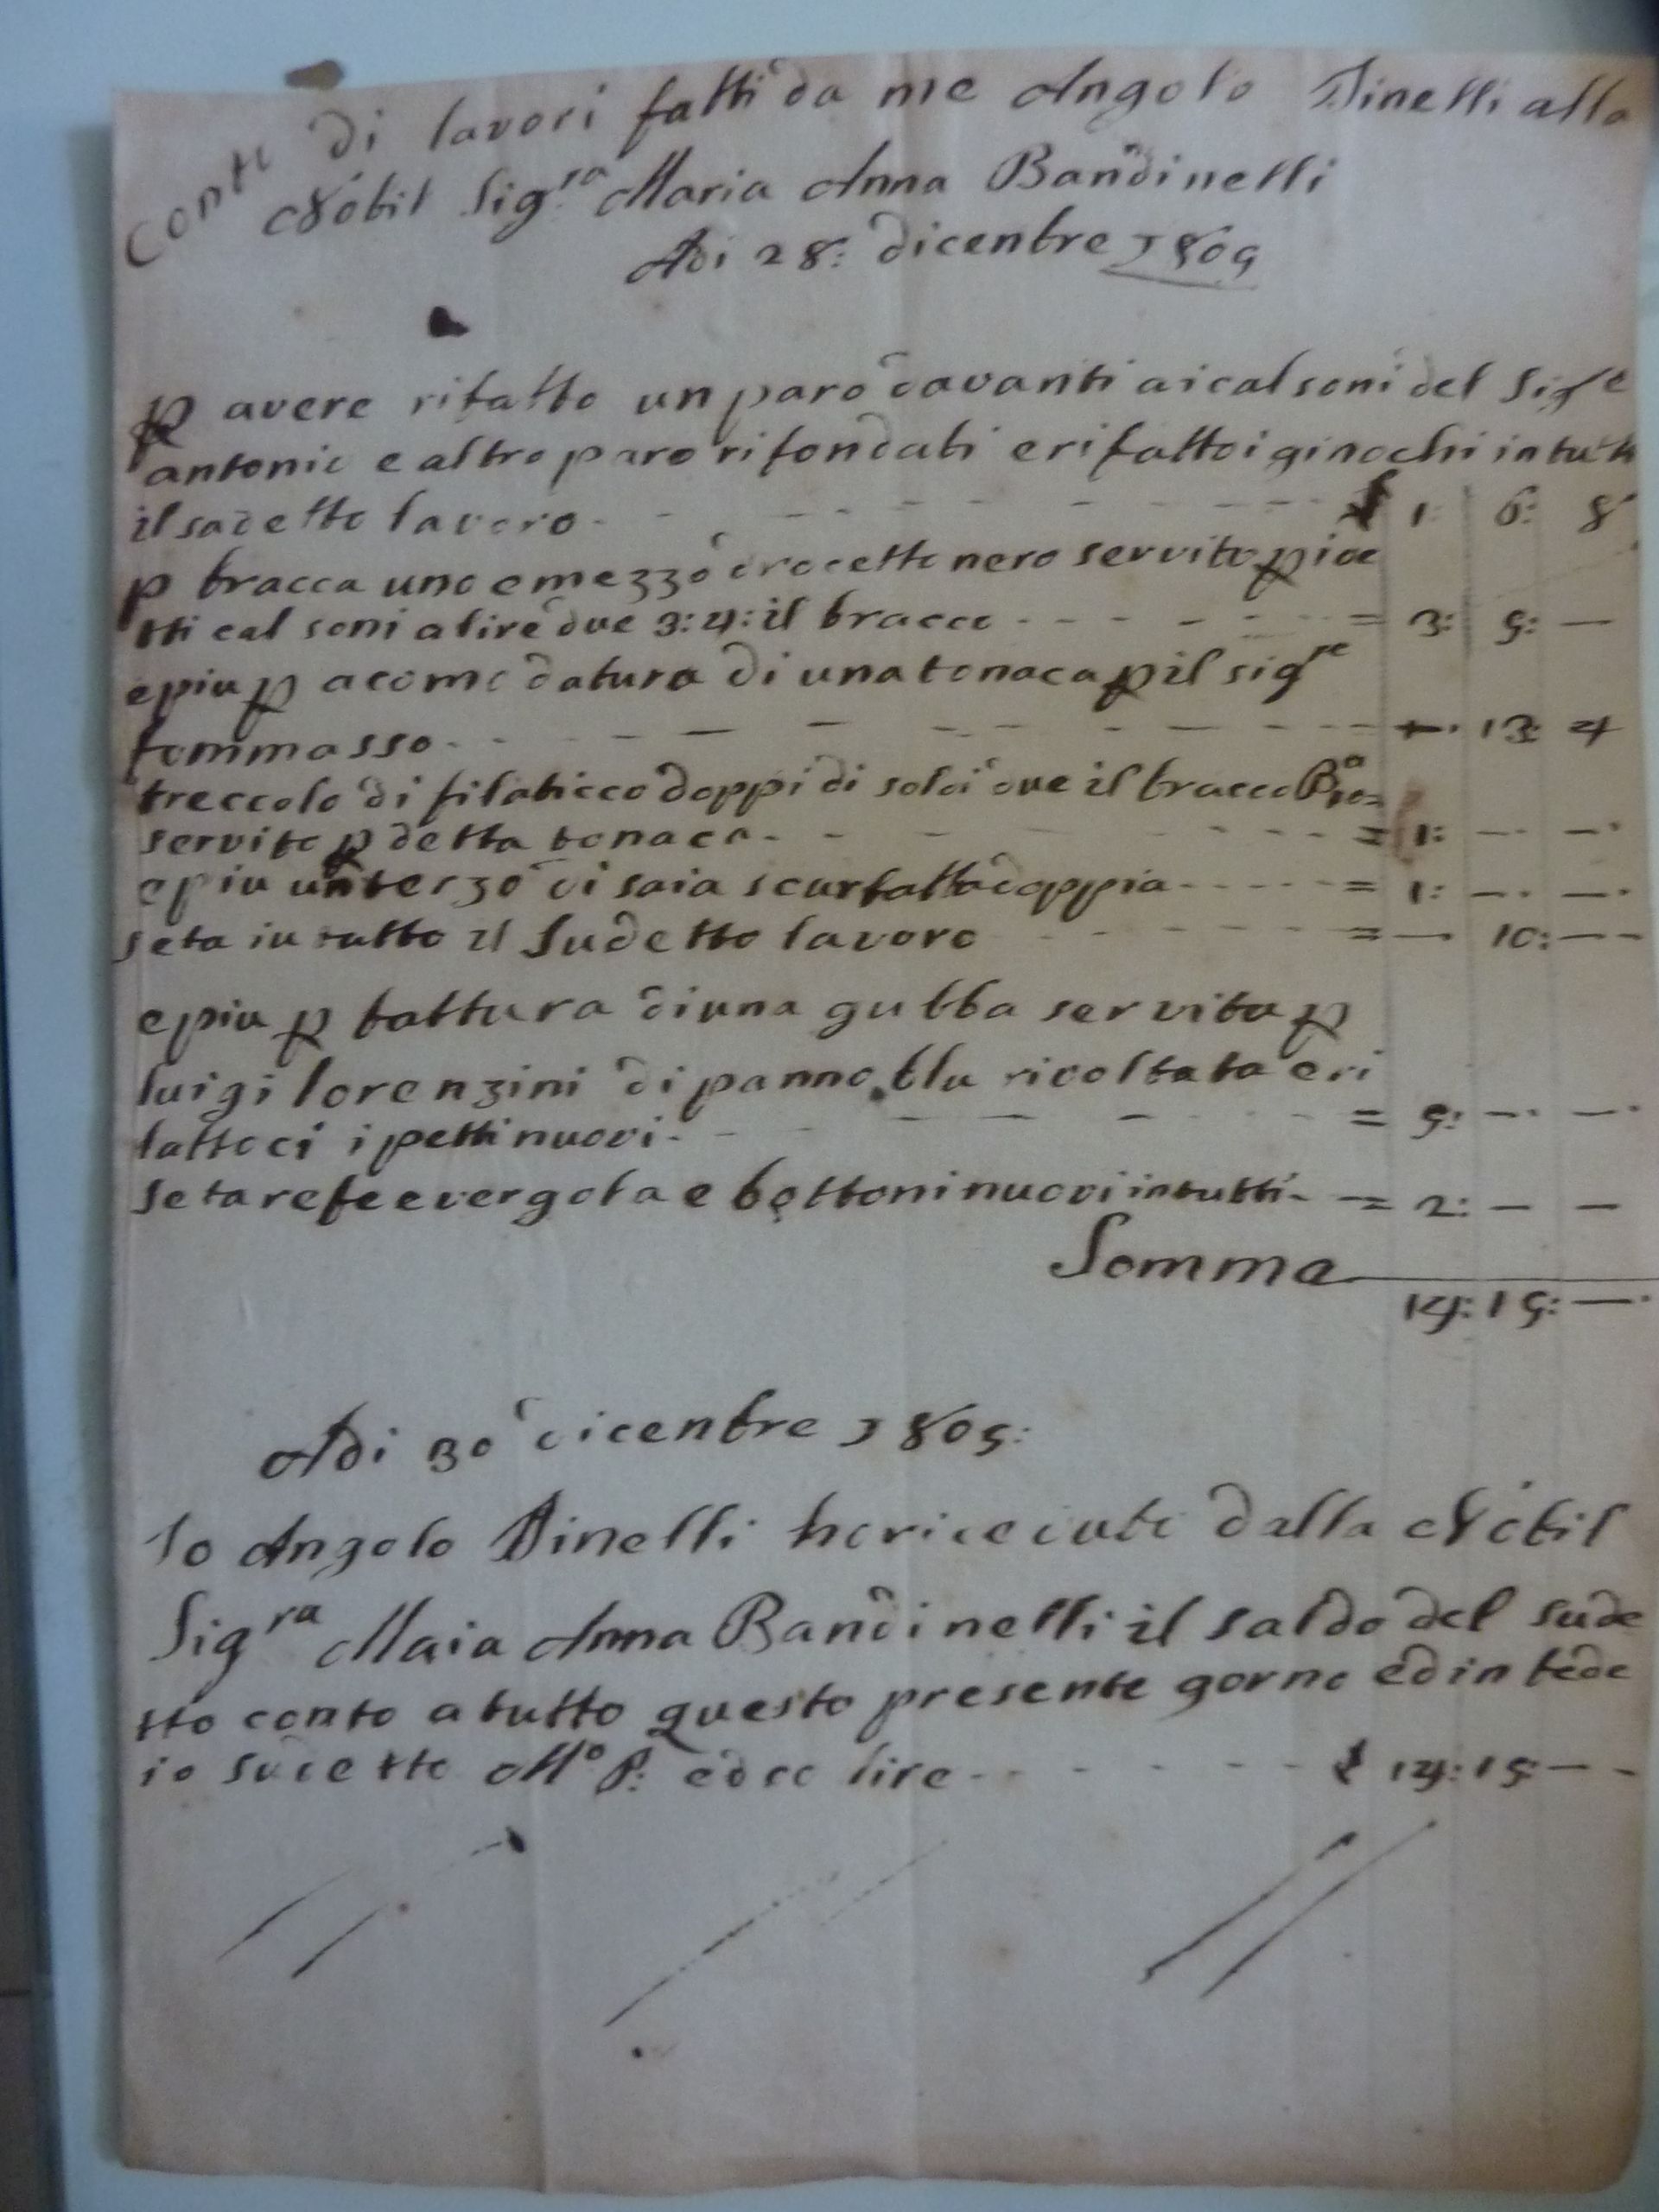 Conti di lavori fatti da me Angolo Dinelli alla
Nobil Sig.ra Maria Anna Bandinelli
Adi 28: dicenbre 1805
p avere rifatto un paro davanti ai calsoni del Sig.e
antonio e altro paro rifondati e rifatto i ginochi in tutto
il sadetto lavoro - - - £ 1: 6: 8
p bracca uno e mezzo crocetto nero servito p i de
tti calsoni a lire due 3:4: il bracco - - - = 3: 5: —
e piu p acomodatura di una tonaca p il sigre
tommasso - - - —. 13: 4
treccolo di filaticco doppi di soldi due il bracco Ba 10=
servito p detta tonaca - - - = 1: —. —.
e piu un terzo di saia scurfatta doppia - - - = 1: —. —.
seta in tutto il Sudetto lavoro - - - = — 10: —
e piu p fattura di una gubba servita p
luigi lorenzini di panno blu rivoltata e ri
fattoci i petti nuovi - - - = 5: —. —.
seta refe e vergola e bottoni nuovi in tutti - = 2: — —
Somma
14: 15: —.
Adi 30 dicenbre 1805:
Io Angolo Dinelli ho riceiuto dalla Nobil
Sigra Maia Anna Bandinelli il saldo del sude
tto conto a tutto questo presente gorno ed in fede
io sudetto Mo P: edco lire - - - £ 14: 15: —